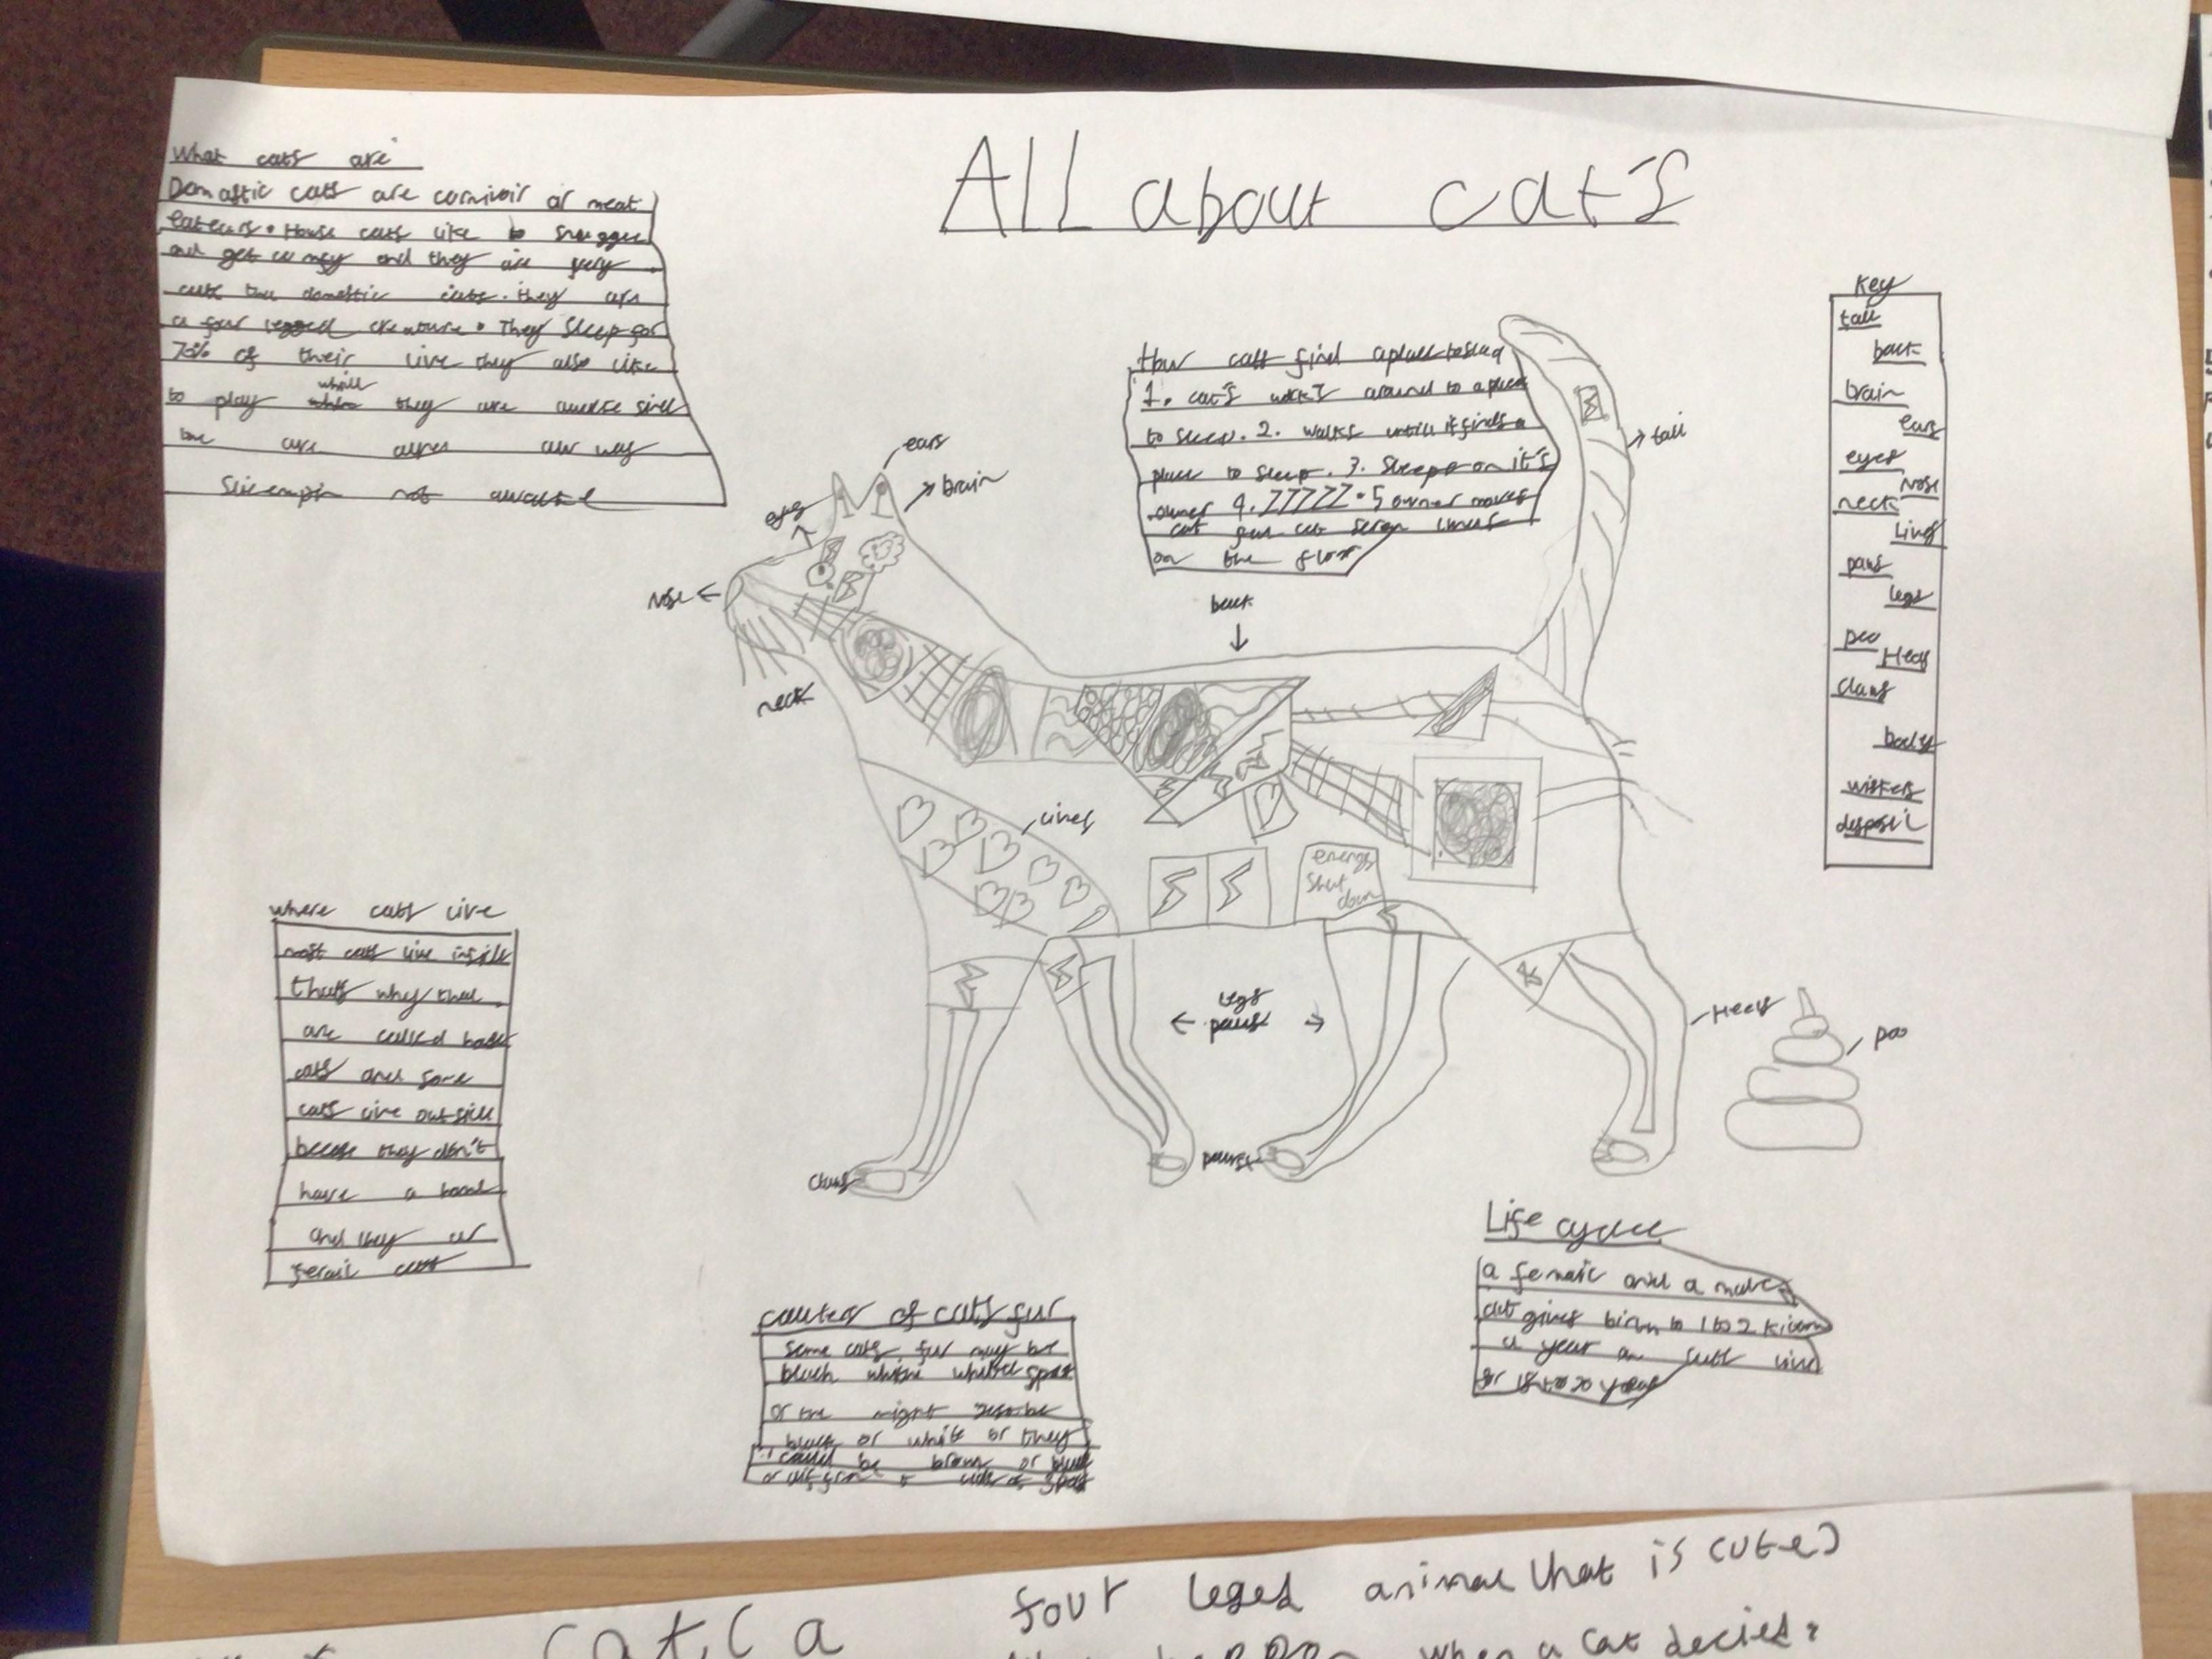 ALL about cats
What cats are
Domastic cats are cornivoir or meat
eatears. House cats like to snuggel
and get comfy and they are very
cute the domestic cats. they are
a four legged creature. They Sleep for
75% of their live they also like
to play whill they are awake
the are all way
not
How cats find a place to sleep
1. cat's walk's around to a place
to sleep. 2. walks untill it finds a
place to sleep. 3. Sleeps on it's
owner 4. ZZZZZ. 5 owner moves
cat
on the floor
Key
tail
back
brain
ears
eyes
Nose
neck
Lives
paws
legs
poo
Heel
claws
body
wiskers
ears
brain
eyes
Nose
neck
back
tail
lives
energy
Shut
down
legs
paws
Heel
poo
claws
paws
where cats live
most cats live inside
thats why thea
are called house
cats and some
cats live outside
they don't
have a
and they
cats
of cats fur
Some cats fur may be
or the might
black or white or they
could be brown or black
Life cycle
a female and a male
cat gives birth to 1 to 2
a year
for 18 to 20 years
cat (a four leged animal that is cute)
when a cat decies: